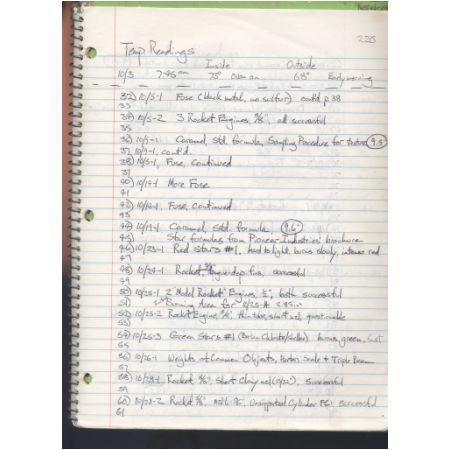 225
Temp Readings
Inside Outside
10/3 7:45am 75° Oven on 68° Early morning
32) 10/5-1 Fuse (black match, no sulfur) cont'd p 38
33
34) 10/5-2 3 Rocket Engines, 5/8", all successful
35
36) 10/9-1 Caramel, std. formula, Sampling Procedure for texture 9.5
37 10/9-1, cont'd.
38) 10/9-1, Fuse, continued
39
40) 10/14-1 More Fuse
41
42) 10/14-1, Fuse, continued
43
44) 10/19-1 Caramel, std. formula, 9.6
45) Star formulas from Pioneer Industries' brochure
46) 10/23-1 Red Stars #1, hard to light, burns slowly, intense red
47
48) 10/24-1 Rocket, successful
49
50) 10/25-1 2 Model Rocket Engines, 1/2", both successful
51) Burning Area for
52) 10/25-2 Rocket Engine, thin tube, questionable
53)
54) 10/25-3 Green Stars #1 burns green
55
56) 10/26-1 Weights of Common Objects, Scale & Triple Beam
57
58) 10/28-1 Rocket 5/8", Short Clay successful
59
60) 10/28-2 Rocket 5/8", Unsupported Cylinder successful
61